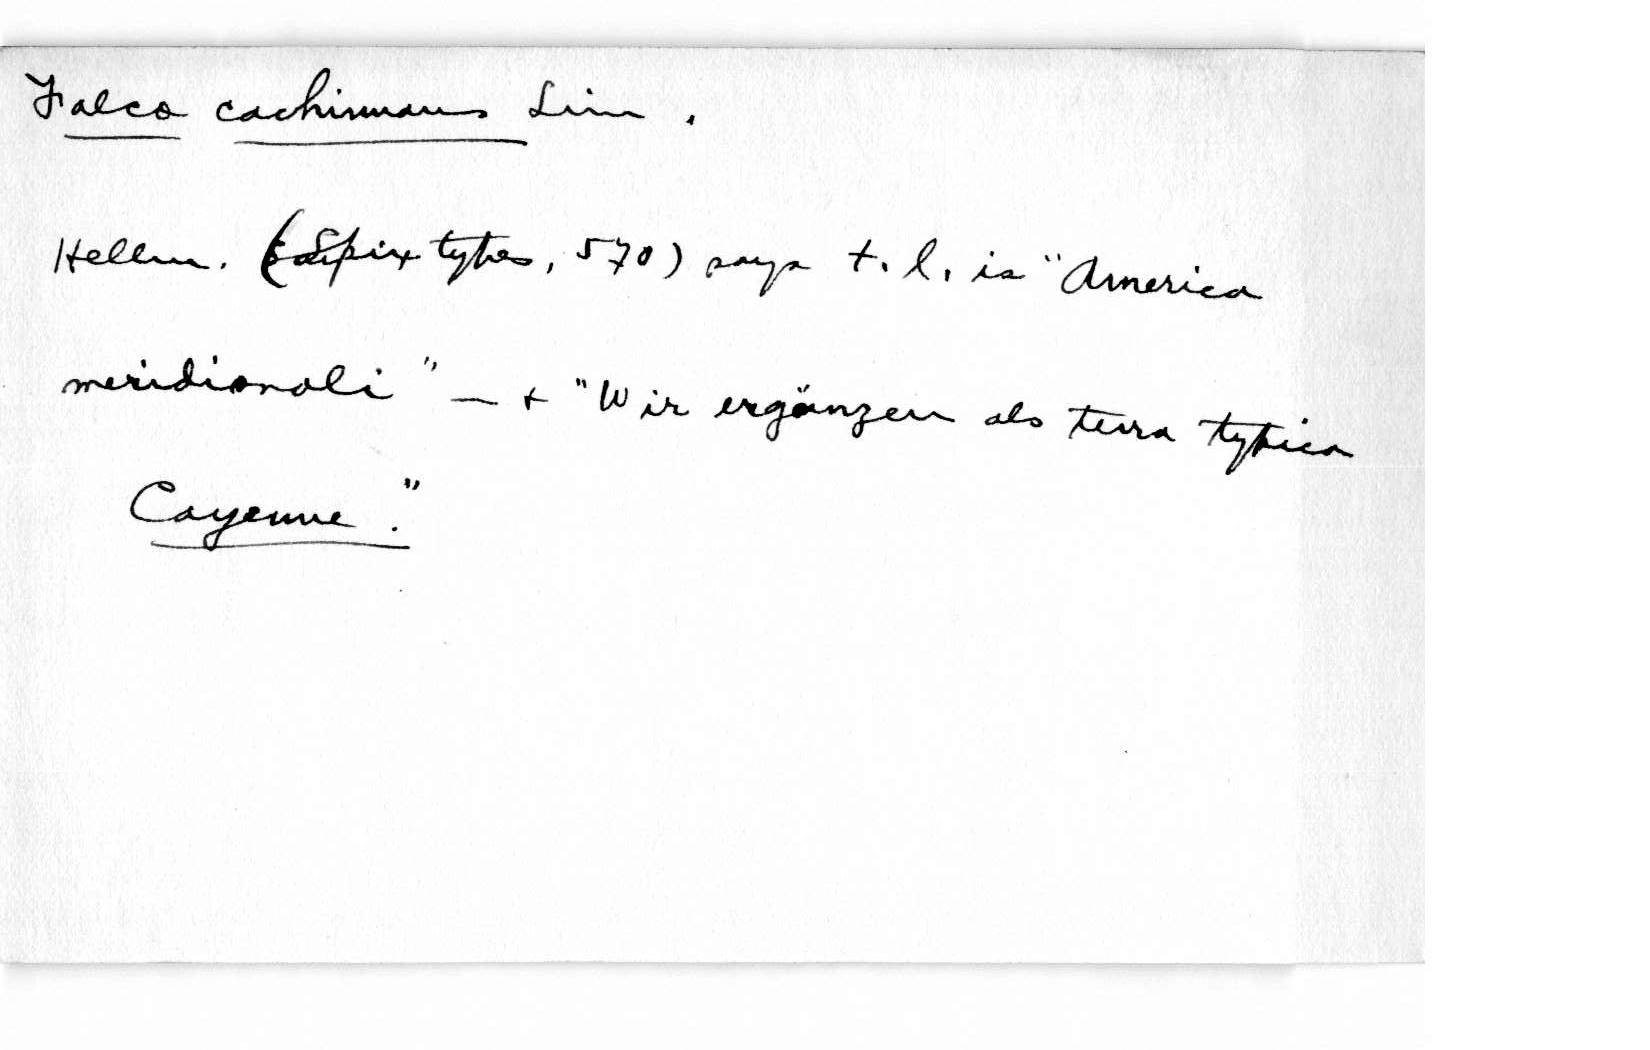 Falco cachinnans Linn.
Hellm. (Spix types, 570) says t. l. is "America
meridionali" — + "Wir ergänzen als terra typica
Cayenne."